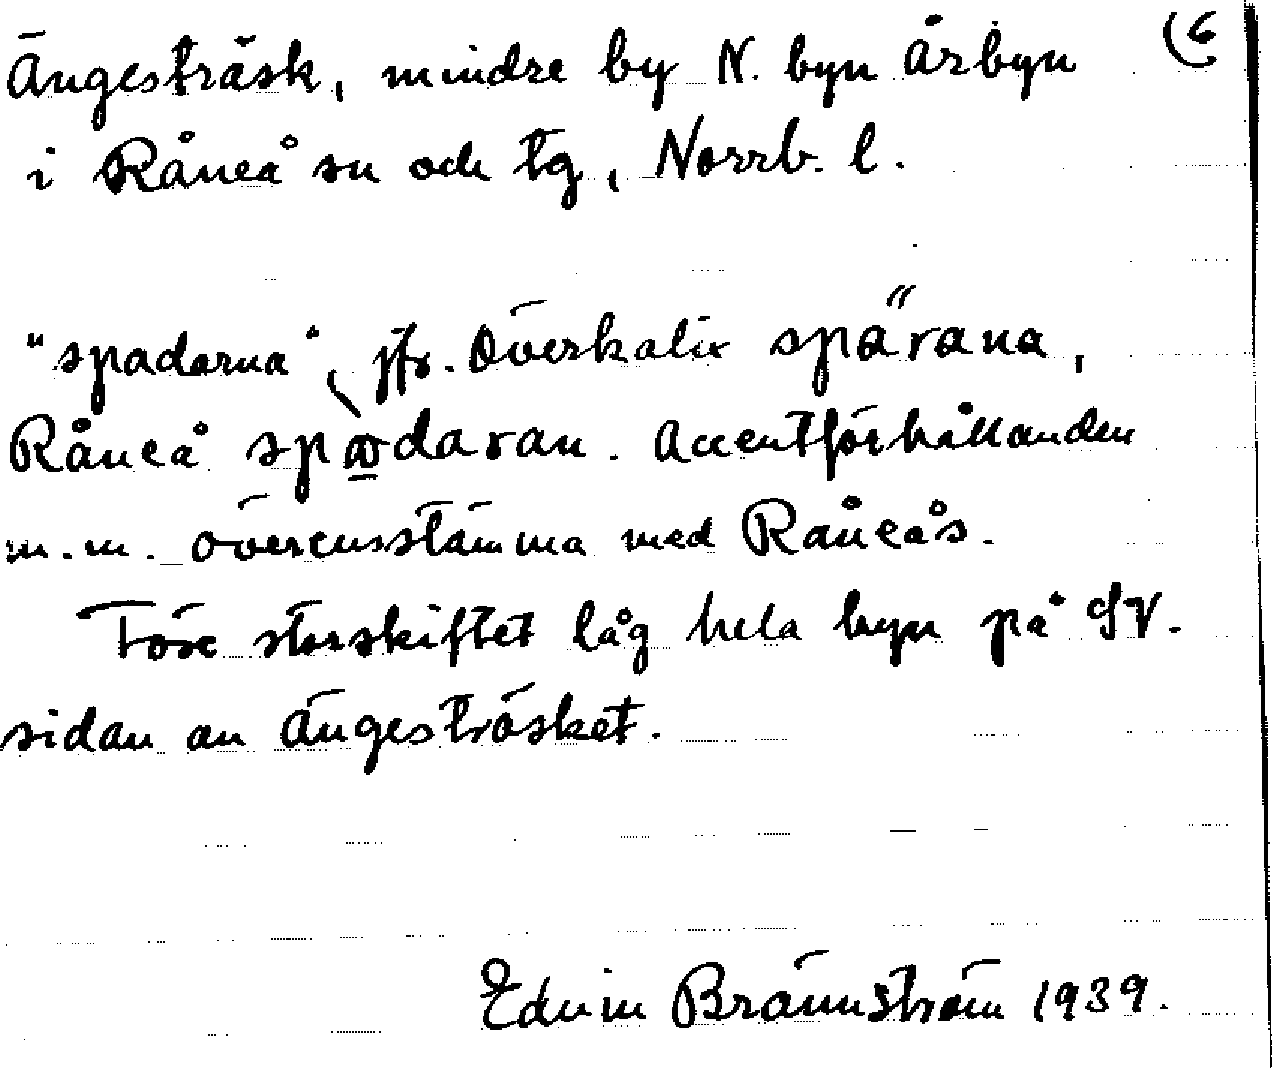 Ängesträsk, mindre by N. byn Årbyn
i Råneå sn och tg, Norrb. l.
"spadarna", jfr. Överkalix spärana,
Råneå spadaran. Accentförhållanden
m.m. överensstämma med Råneås.
Före storskiftet låg hela byn på SV.
sidan an Ängesträsket.
Edvin Brännström 1939.